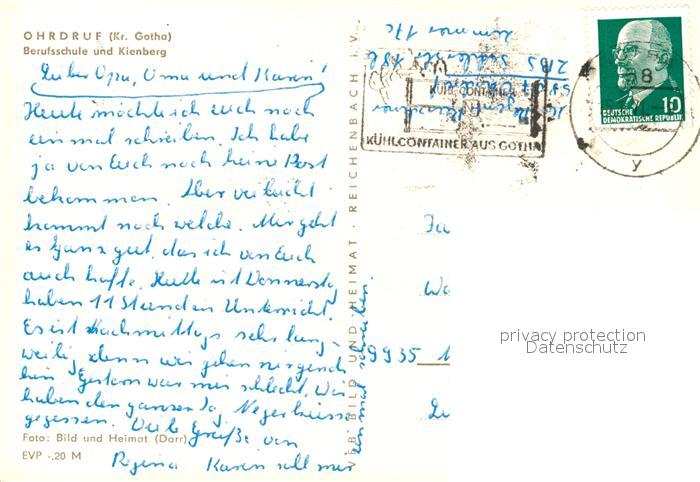 OHRDRUF (Kr. Gotha)
Berufsschule und Kienberg
Lieber Opa, Oma und Karin!
Heute möchte ich euch noch
einmal schreiben. Ich habe
ja von Euch noch keine Post
bekommen. Aber vielleicht
kommt noch welche. Mir geht
es ganz gut, das ich von Euch
auch hoffe. Heute ist Donnerstag
haben 11 Stunden Unterricht.
Es ist Nachmittags sehr lang-
weilig, denn wir gehen nirgends
hin. Gestern war mir schlecht. Wir
haben den ganzen Tag Negerküsse
gegessen. Viele Grüße von
Regina Karin soll mir
einmal schreiben.
Foto: Bild und Heimat (Darr)
EVP -,20 M
VEB BILD UND HEIMAT · REICHENBACH i. V.
Zimmer 17c
KÜHLCONTAINER AUS GOTHA
DEUTSCHE
DEMOKRATISCHE REPUBLIK
10
y
9935
privacy protection
Datenschutz